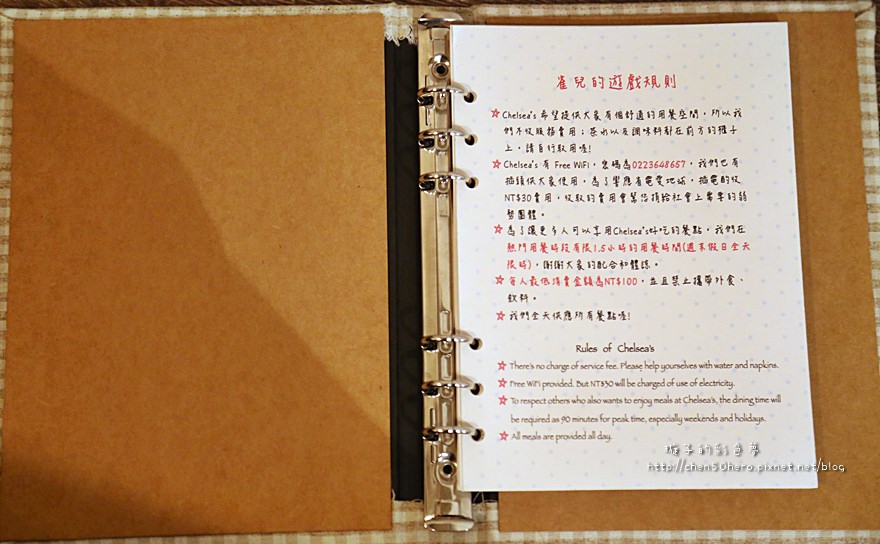 雀兒的遊戲規則
Chelsea's 希望提供大家有個舒適的用餐空間，所以我
們不收服務費用；茶水以及調味料都在前方的櫃子
上，請自行取用喔!
Chelsea's 有 Free WiFi，密碼為0223648657，我們也有
插頭供大家使用，為了響應省電愛地球，插電酌收
NT$30費用，收取的費用會幫您捐給社會上需要的弱
勢團體。
為了讓更多人可以享用Chelsea's好吃的餐點，我們在
熱門用餐時段有限1.5小時的用餐時間(週末假日全天
限時)，謝謝大家的配合和體諒。
每人最低消費金額為NT$100，並且禁止攜帶外食、
飲料。
我們全天供應所有餐點喔!
Rules of Chelsea's
There's no charge of service fee. Please help yourselves with water and napkins.
Free WiFi provided. But NT$30 will be charged of use of electricity.
To respect others who also wants to enjoy meals at Chelsea's, the dining time will
be required as 90 minutes for peak time, especially weekends and holidays.
All meals are provided all day.
子的彩色夢
http://chen50hero.pixnet.net/blog